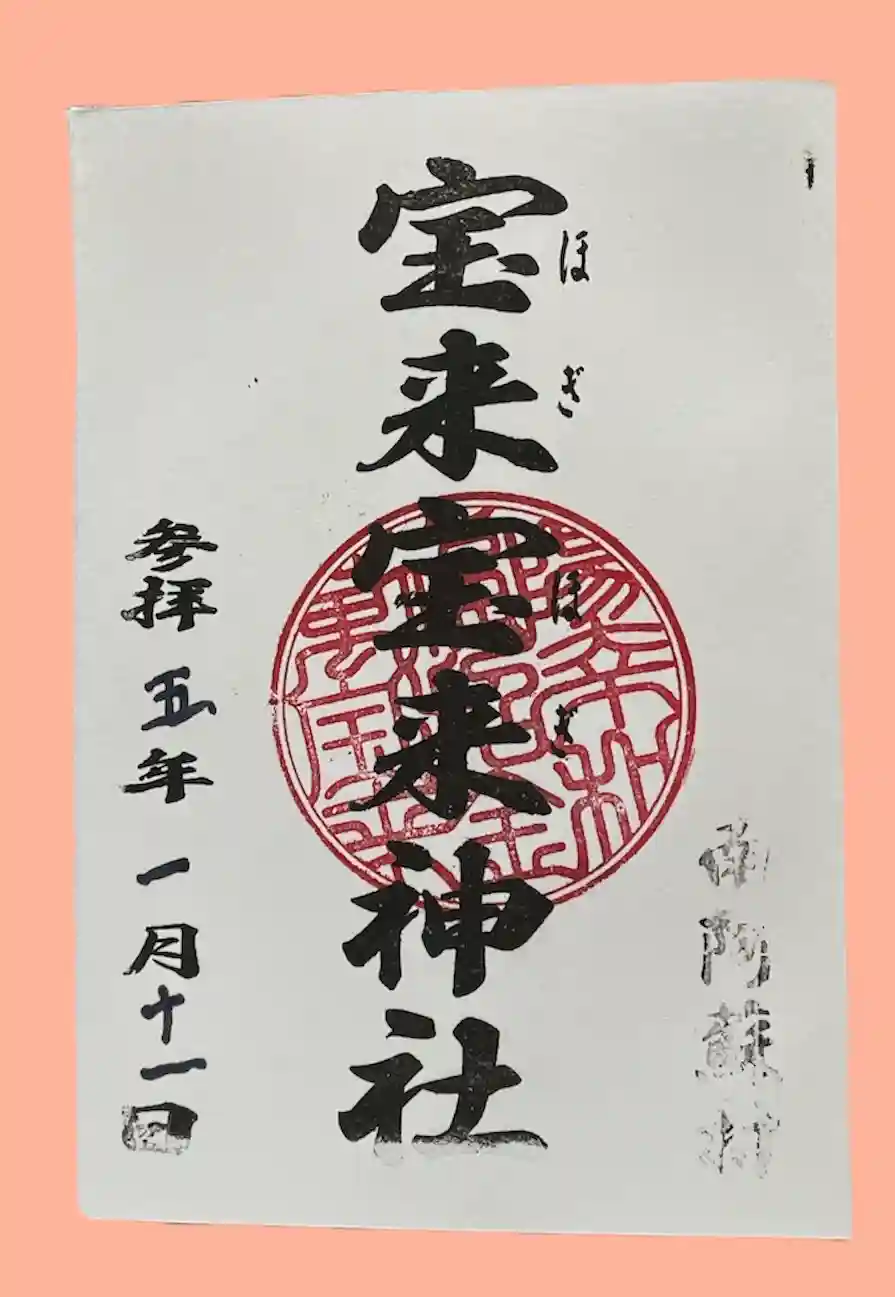 南阿蘇村
宝来宝来神社
ほぎ ほぎ
参拝 五年 一月十一日